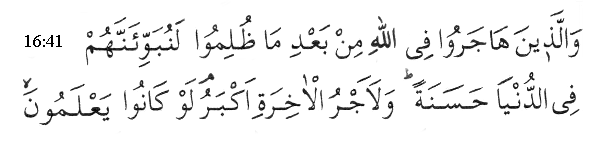 16:41 وَالَّذِينَ هَاجَرُوا فِى اللهِ مِنْ بَعْدِ مَا ظُلِمُوا لَنُبَوِّئَنَّهُمْ
فِى الدُّنْيَا حَسَنَةً ؕ وَلَاَجْرُ الْاٰخِرَةِ اَكْبَرُ ۘ لَوْ كَانُوا يَعْلَمُونَ ۙ